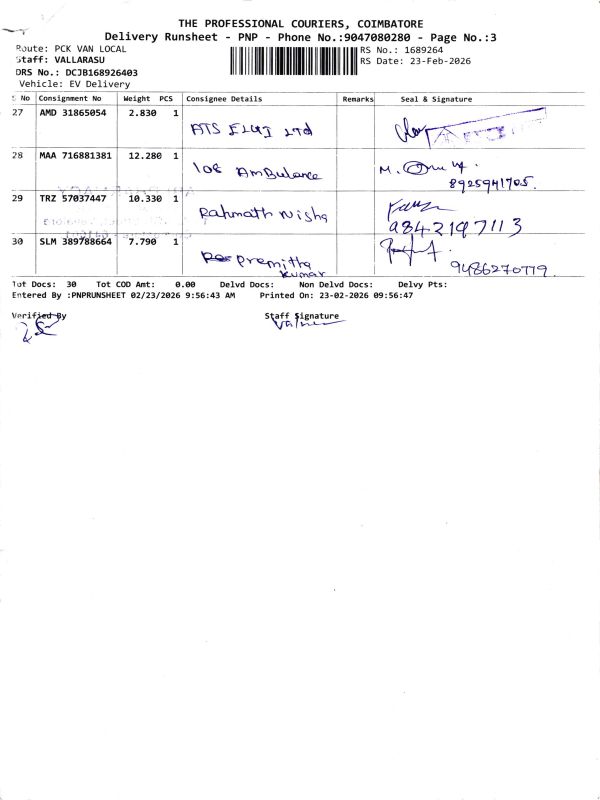 THE PROFESSIONAL COURIERS, COIMBATORE
Delivery Runsheet - PNP - Phone No.:9047080280 - Page No.:3
Route: PCK VAN LOCAL
Staff: VALLARASU
DRS No.: DCJB168926403
Vehicle: EV Delivery
RS No.: 1689264
RS Date: 23-Feb-2026
S No Consignment No Weight PCS Consignee Details Remarks Seal & Signature
27 AMD 31865054 2.830 1 ATS ELGI Ltd
28 MAA 716881381 12.280 1 108 AmBulance M.
8925941705.
29 TRZ 57037447 10.330 1 Rahmath Nisha
9842197113
30 SLM 389788664 7.790 1 Premitha
kumar
9486270779
Tot Docs: 30 Tot COD Amt: 0.00 Delvd Docs: Non Delvd Docs: Delvy Pts:
Entered By :PNPRUNSHEET 02/23/2026 9:56:43 AM Printed On: 23-02-2026 09:56:47
Verified By Staff Signature